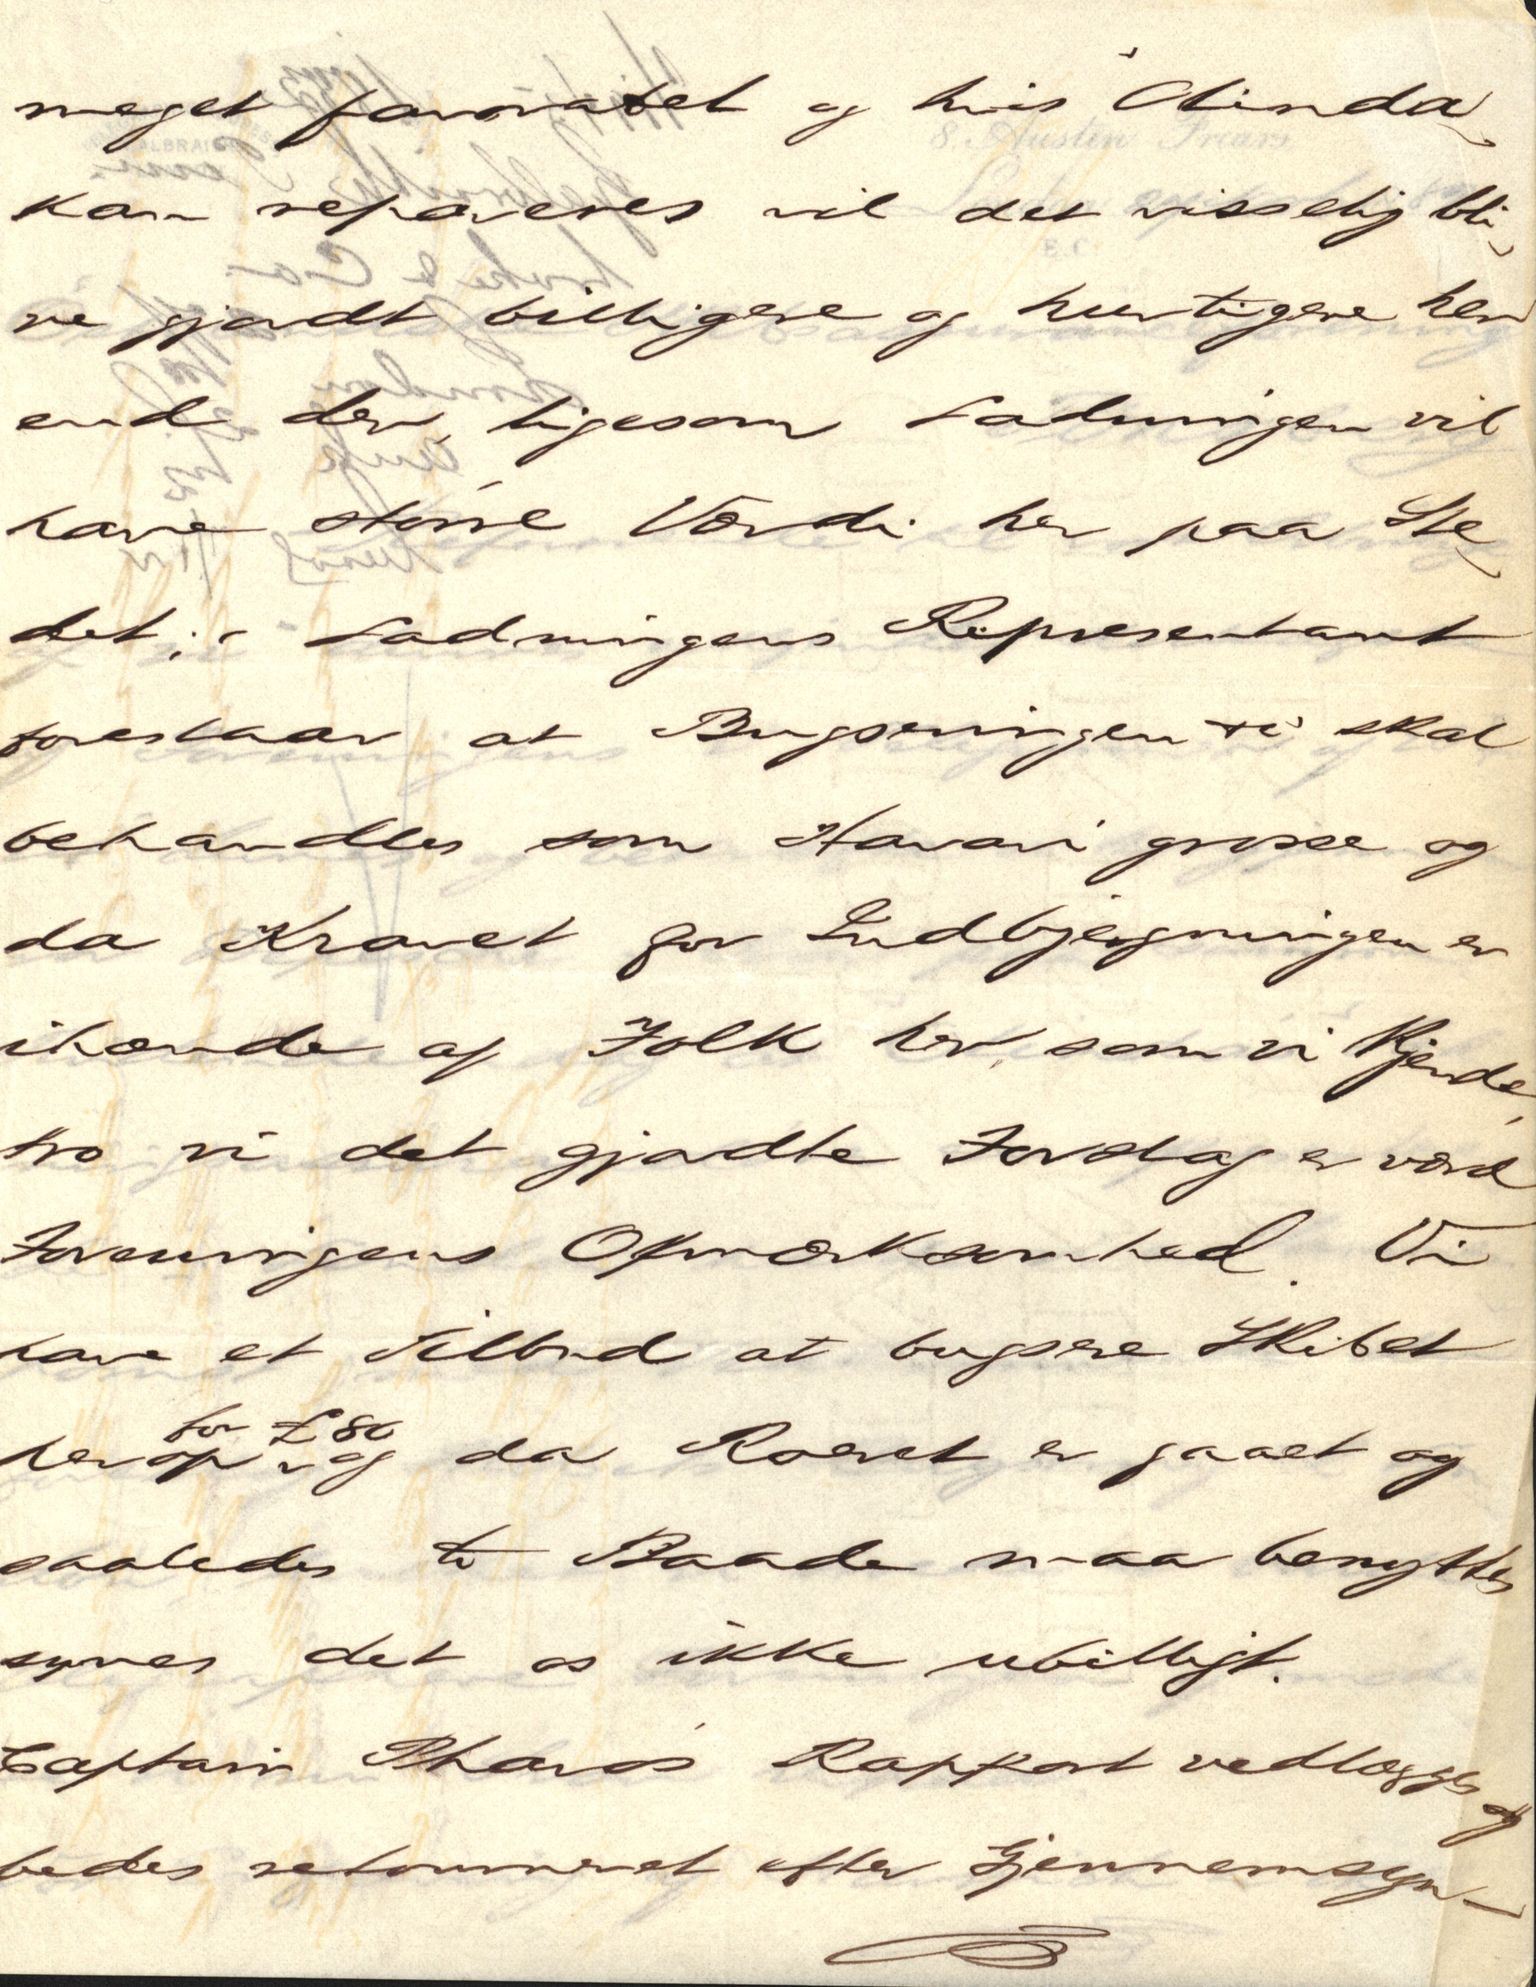 meget favorabel og hvis "Olinda"
kan repareres vil det visselig bli-
ve gjordt billigere og hurtigere her
end der, ligesom Ladningen vil
have større Værdi her paa Ste-
det; Ladningens Representant
forestaar at Bugseringen til skal
behandles som Havari grosse og
da Kravet for Indbjergningen er
ihænde af Folk her, som vi kjende,
tro vi det gjordte Forslag er værd
Foreningens Opmærksomhed. Vi
have et Tilbud at bugsere Skibet
for £80
herop og da Roeret er gaaet og
saaledes to Baade maa benyttes
synes det os ikke ubilligt.
Captain Pharo's Rapport vedlægges og
bedes retourneret efter Gjennemsyn -
8. Austin Friars